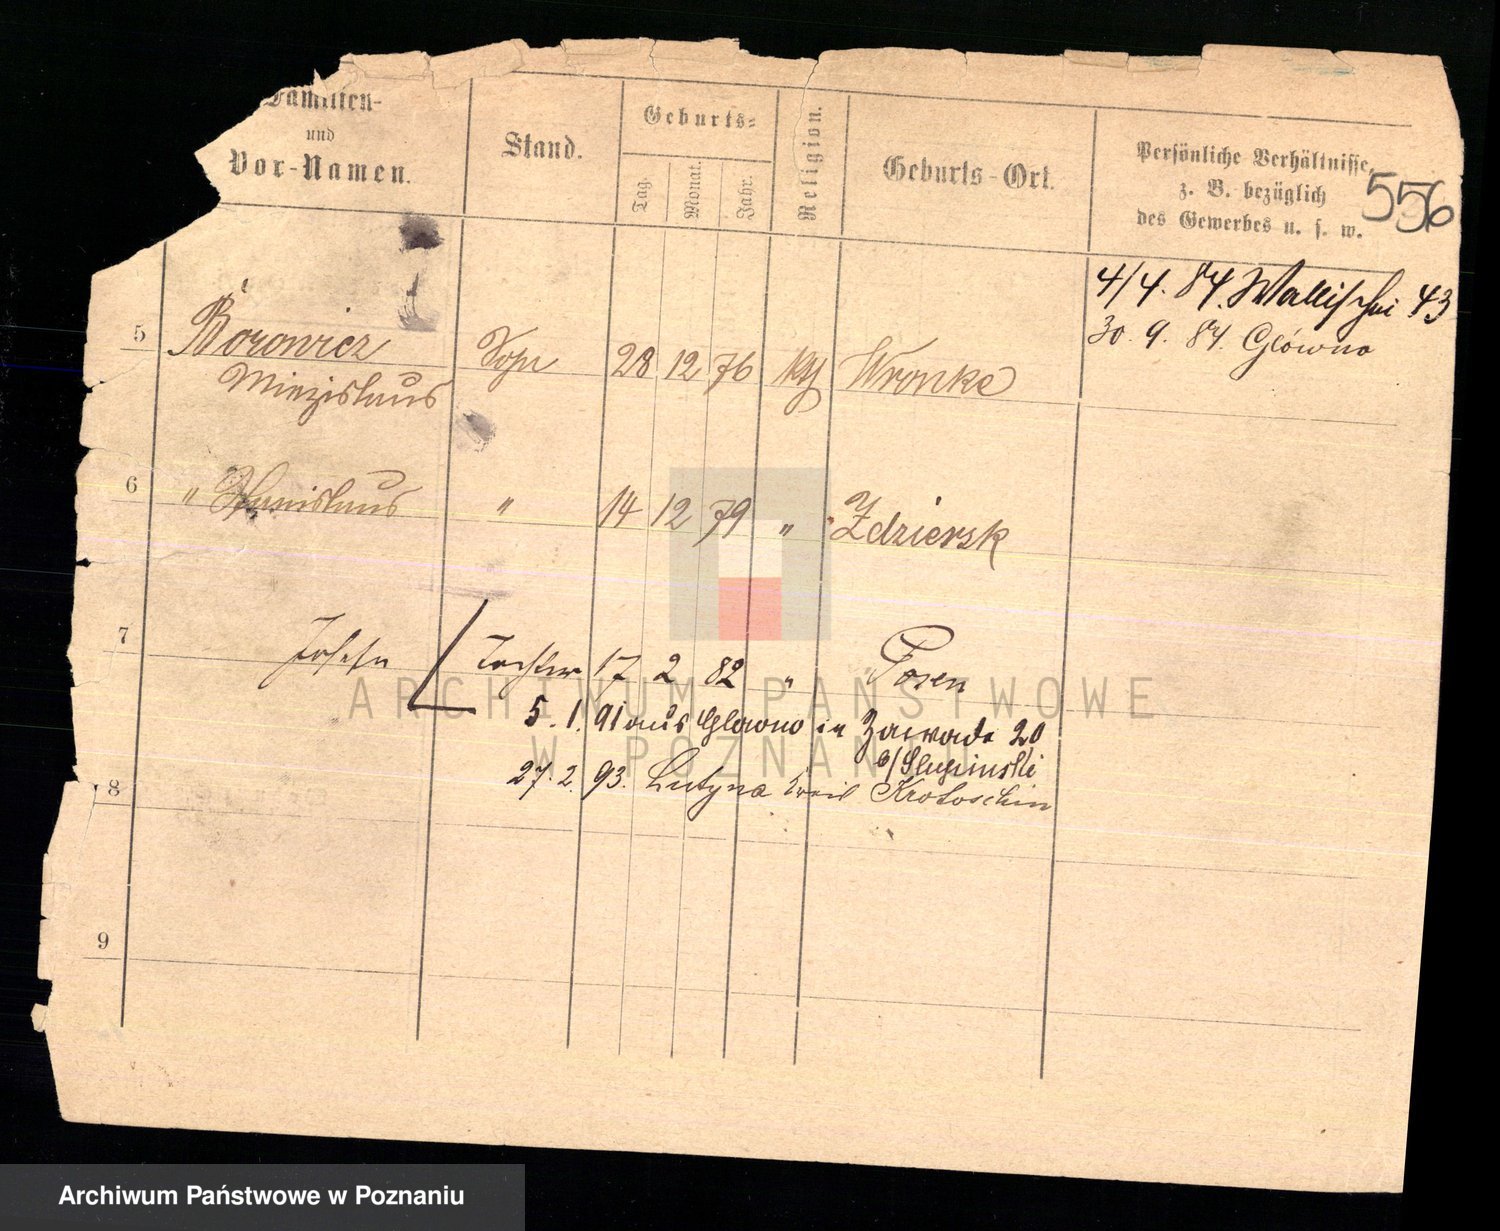 Familien-
und
Vor-Namen.
Stand.
Geburts-
Tag.
Monat.
Jahr.
Religion.
Geburts-Ort.
Persönliche Verhältnisse,
z. B. bezüglich
des Gewerbes u. s. w.
556
4/4. 84. Wallischei 43
30. 9. 84 Główno
5 Borowicz Sohn 28 12 76 kth Wronke
Miezislaus
6 " Stanislaus " 14 12 79 " Zdziersk
7 Tochter 17 2 82 " Posen
5. 1. 91 aus Glowno in Zawade 20
b/Slupinski
27. 2. 93. Lutynia Kreis Krotoschin
8
9
ARCHIWUM PAŃSTWOWE
W POZNANIU
Archiwum Państwowe w Poznaniu